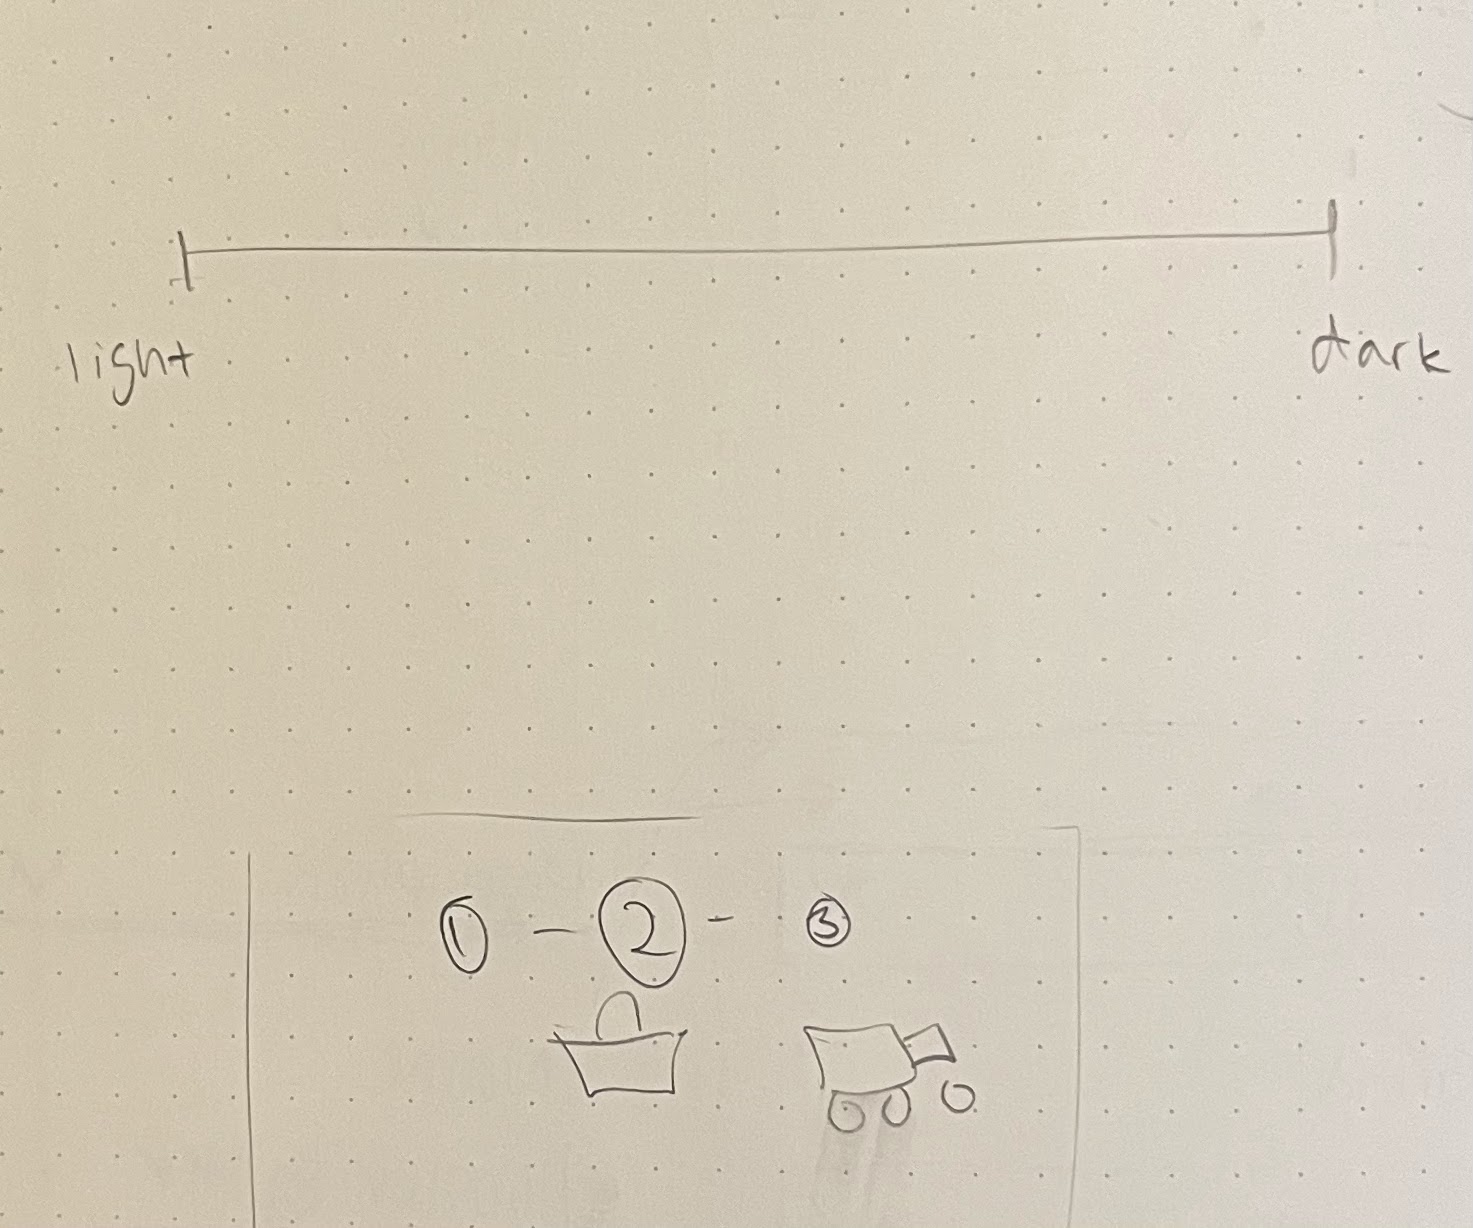 light dark
① - ② - ③